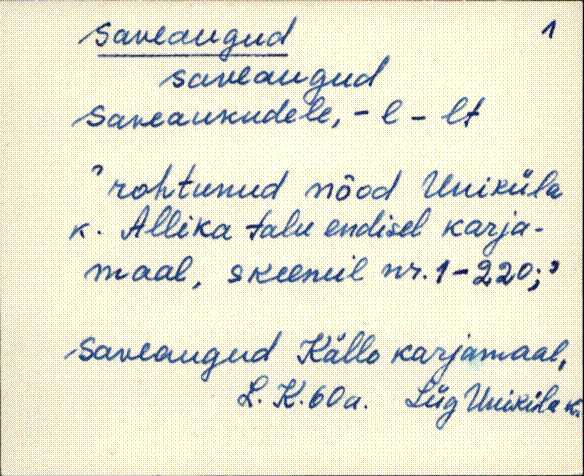 1
saveaugud
saveaugud
saveaukudele, - l - lt
"rohtunud nõod Uniküla
k. Allika talu endisel karja-
maal, skeemil nr. 1-220;"
Saveaugud Källo karjamaal,
L. K. 60a. Lüg Uniküla k.